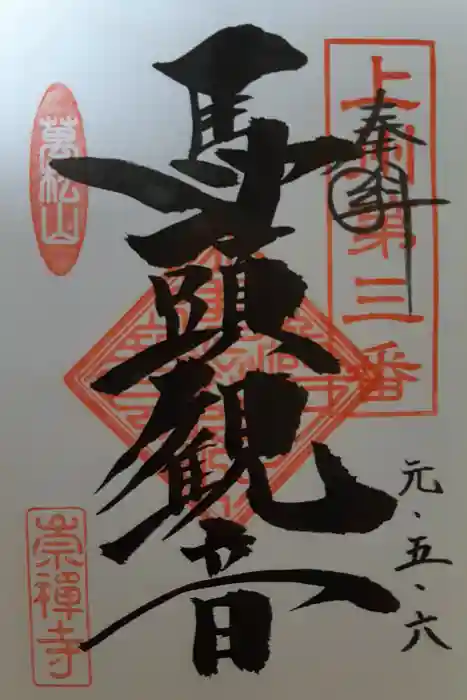 上州第三番
奉拝
馬頭観音
元・五・六
萬松山
崇禪寺